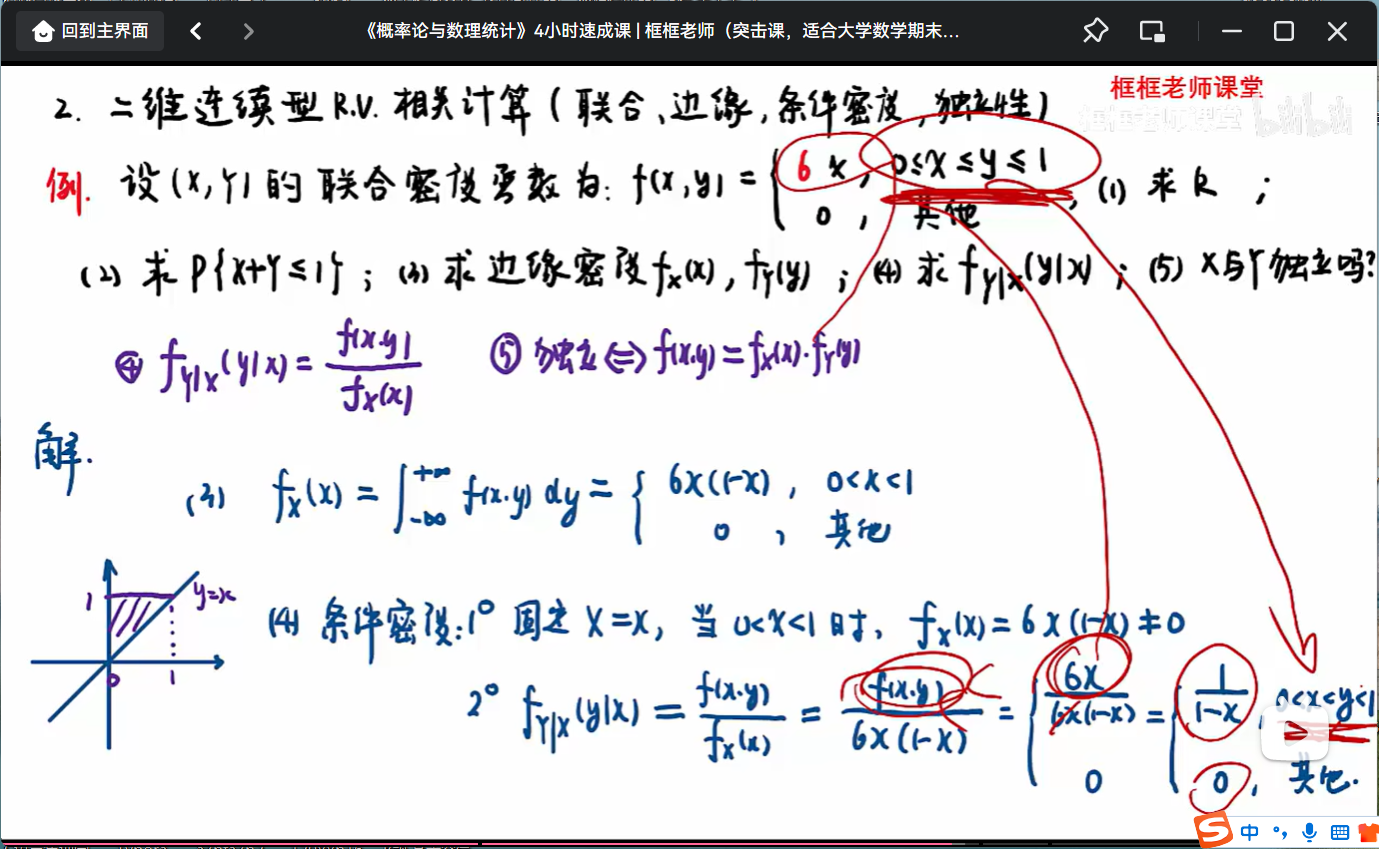 回到主界面
《概率论与数理统计》4小时速成课 | 框框老师（突击课，适合大学数学期末...
框框老师课堂
框框老师课堂 bilibili
2. 二维连续型 R.V. 相关计算 (联合、边缘, 条件密度, 独立性)
例. 设 (X, Y) 的联合密度函数为: f(x, y) = { 6 x, 0≤x≤y≤1
0, 其他 , (1) 求 k ;
(2) 求 P{X+Y≤1} ; (3) 求边缘密度 f_X(x), f_Y(y) ; (4) 求 f_{Y|X}(y|x) ; (5) X与Y独立吗?
④ f_{Y|X}(y|x) = f(x.y) / f_X(x) ⑤ 独立 ⇔ f(x.y) = f_X(x)·f_Y(y)
解.
(3) f_X(x) = ∫_{-∞}^{+∞} f(x.y) dy = { 6x(1-x) , 0<x<1
0 , 其他
1 y=x
0 1
(4) 条件密度: 1° 固定 X=x, 当 0<x<1 时, f_X(x) = 6x(1-x) ≠ 0
2° f_{Y|X}(y|x) = f(x.y) / f_X(x) = f(x.y) / 6x(1-x) = { 6x / 6x(1-x) = { 1 / 1-x , 0<x<y<1
0 0 , 其他.
中